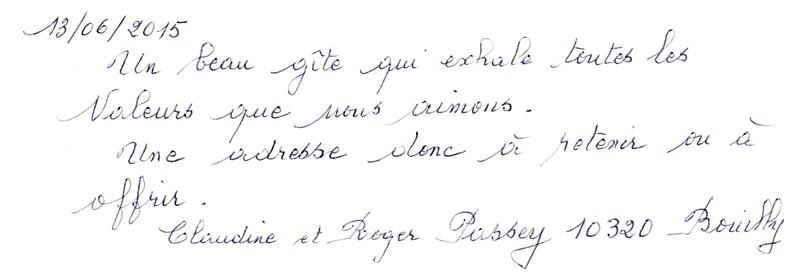 13/06/2015
Un beau gîte qui exhale toutes les
Valeurs que nous aimons.
Une adresse donc à retenir ou à
offrir.
Claudine et Roger Passey 10320 Bouilly